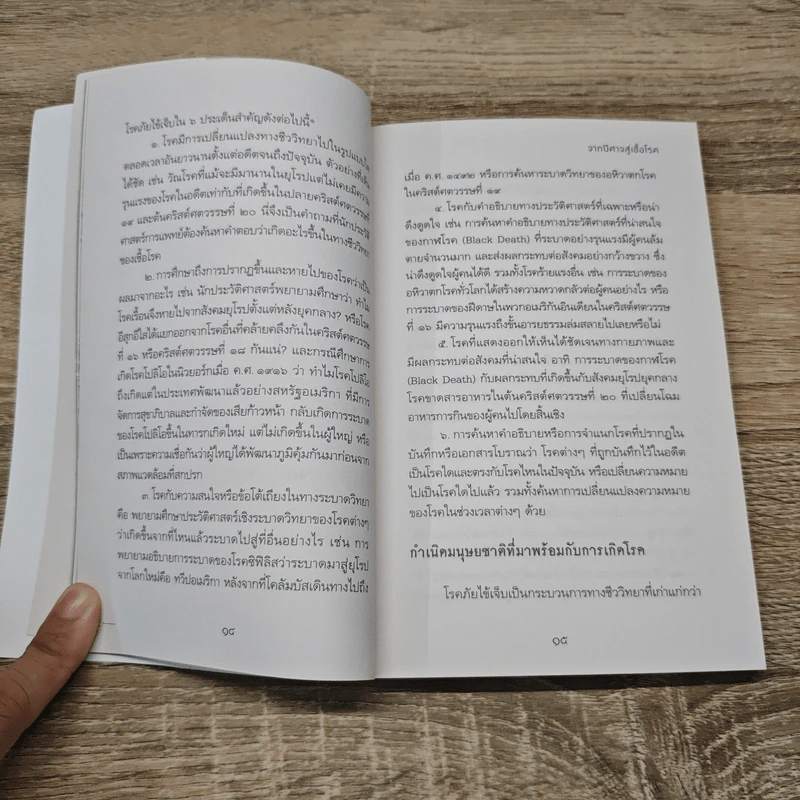 โรคภัยไข้เจ็บใน ๖ ประเด็นสำคัญดังต่อไปนี้
๑. โรคมีการเปลี่ยนแปลงทางชีววิทยาไปในรูปแบบใด
ตลอดเวลาอันยาวนานตั้งแต่อดีตจนถึงปัจจุบัน ตัวอย่างที่เห็น
ได้ชัด เช่น วัณโรคที่แม้จะมีมานานในยุโรปแต่ไม่เคยมีความ
รุนแรงของโรคในอดีตเท่ากับที่เกิดขึ้นในปลายคริสต์ศตวรรษที่
๑๙ และต้นคริสต์ศตวรรษที่ ๒๐ นี่จึงเป็นคำถามที่นักประวัติ
ศาสตร์การแพทย์ต้องค้นหาคำตอบว่าเกิดอะไรขึ้นในทางชีววิทยา
ของเชื้อโรค
๒. การศึกษาถึงการปรากฏขึ้นและหายไปของโรคว่าเป็น
ผลมาจากอะไร เช่น นักประวัติศาสตร์พยายามศึกษาว่า ทำไม
โรคเรื้อนจึงหายไปจากสังคมยุโรปตั้งแต่หลังยุคกลาง? หรือโรค
อีสุกอีใสได้แยกออกจากโรคอื่นที่คล้ายคลึงกันในคริสต์ศตวรรษ
ที่ ๑๖ หรือคริสต์ศตวรรษที่ ๑๘ กันแน่? และกรณีศึกษาการ
เกิดโรคโปลิโอในนิวยอร์กเมื่อ ค.ศ. ๑๙๑๖ ว่า ทำไมโรคโปลิโอ
ถึงเกิดแต่ในประเทศพัฒนาแล้วอย่างสหรัฐอเมริกา ที่มีการ
จัดการสุขาภิบาลและกำจัดของเสียก้าวหน้า กลับเกิดการระบาด
ของโรคโปลิโอขึ้นในทารกเกิดใหม่ แต่ไม่เกิดขึ้นในผู้ใหญ่ หรือ
เป็นเพราะความเชื่อกันว่าผู้ใหญ่ได้พัฒนาภูมิคุ้มกันมาก่อนจาก
สภาพแวดล้อมที่สกปรก
๓. โรคกับความสนใจหรือข้อโต้เถียงในทางระบาดวิทยา
คือ พยายามศึกษาประวัติศาสตร์เชิงระบาดวิทยาของโรคต่างๆ
ว่าเกิดขึ้นจากที่ไหนแล้วระบาดไปสู่ที่อื่นอย่างไร เช่น การ
พยายามอธิบายการระบาดของโรคซิฟิลิสว่าระบาดมาสู่ยุโรป
จากโลกใหม่คือ ทวีปอเมริกา หลังจากที่โคลัมบัสเดินทางไปถึง
๑๔
จากปีศาจสู่เชื้อโรค
เมื่อ ค.ศ. ๑๔๙๒ หรือการค้นหาระบาดวิทยาของอหิวาตกโรค
ในคริสต์ศตวรรษที่ ๑๙
๔. โรคกับคำอธิบายทางประวัติศาสตร์ที่เฉพาะหรือน่า
ดึงดูดใจ เช่น การค้นหาคำอธิบายทางประวัติศาสตร์ที่น่าสนใจ
ของกาฬโรค (Black Death) ที่ระบาดอย่างรุนแรงมีผู้คนล้ม
ตายจำนวนมาก และส่งผลกระทบต่อสังคมอย่างกว้างขวาง ซึ่ง
น่าดึงดูดใจผู้คนได้ดี รวมทั้งโรคร้ายแรงอื่น เช่น การระบาดของ
อหิวาตกโรคทั่วโลกได้สร้างความหวาดกลัวต่อผู้คนอย่างไร หรือ
การระบาดของฝีดาษในพวกอเมริกันอินเดียนในคริสต์ศตวรรษ
ที่ ๑๖ มีความรุนแรงถึงขั้นอารยธรรมล่มสลายไปเลยหรือไม่
๕. โรคที่แสดงออกให้เห็นได้ชัดเจนทางกายภาพและ
มีผลกระทบต่อสังคมที่น่าสนใจ อาทิ การระบาดของกาฬโรค
(Black Death) กับผลกระทบที่เกิดขึ้นกับสังคมยุโรปยุคกลาง
โรคขาดสารอาหารในต้นคริสต์ศตวรรษที่ ๒๐ ที่เปลี่ยนโฉม
อาหารการกินของผู้คนไปโดยสิ้นเชิง
๖. การค้นหาคำอธิบายหรือการจำแนกโรคที่ปรากฏใน
บันทึกหรือเอกสารโบราณว่า โรคต่างๆ ที่ถูกบันทึกไว้ในอดีต
เป็นโรคใดและตรงกับโรคไหนในปัจจุบัน หรือเปลี่ยนความหมาย
ไปเป็นโรคใดไปแล้ว รวมทั้งค้นหาการเปลี่ยนแปลงความหมาย
ของโรคในช่วงเวลาต่างๆ ด้วย
กำเนิดมนุษยชาติที่มาพร้อมกับการเกิดโรค
โรคภัยไข้เจ็บเป็นกระบวนการทางชีววิทยาที่เก่าแก่กว่า
๑๕